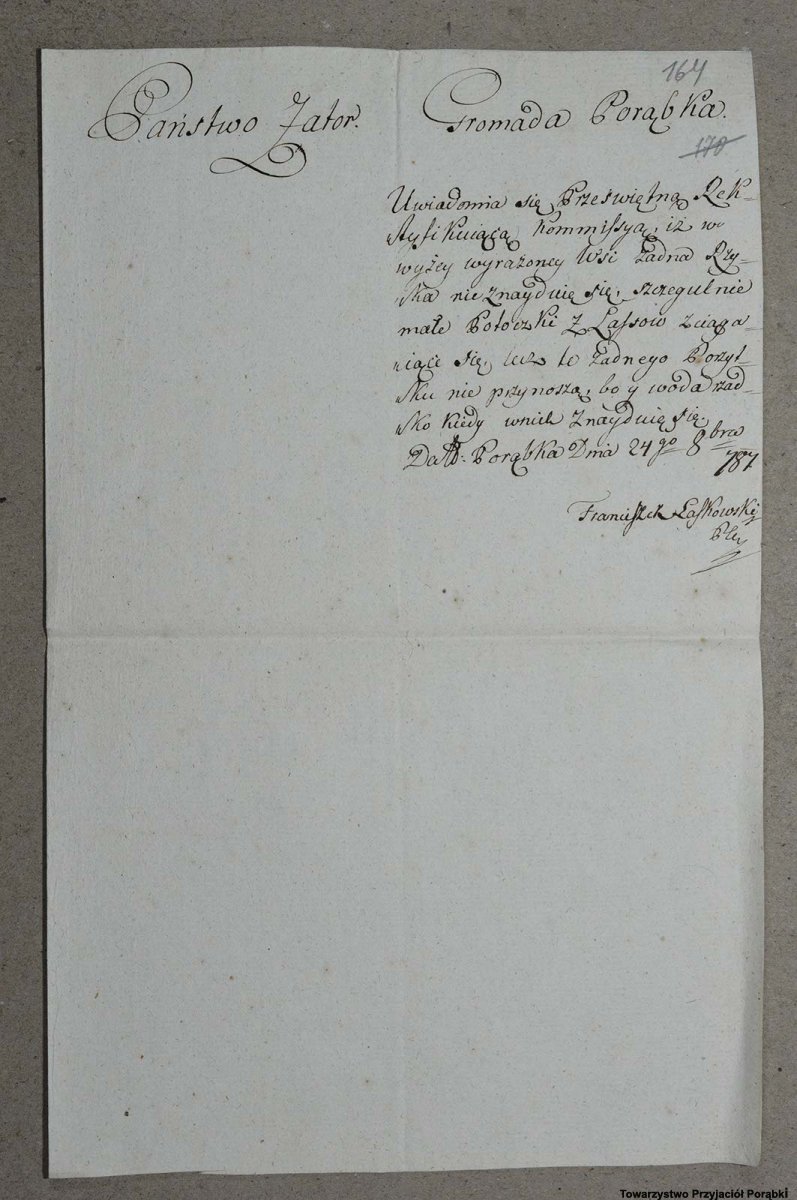 164
Państwo Zator.
Gromada Porąbka.
170
Uwiadomia się Przeświętną Rek-
tyfikuiącą Kommissyą, iż w
wyżey wyrażoney Wsi żadna Rzy-
ka nie znayduię się, szczegulnie
małe Potoczki z Lassow zciąga-
iące się, lecz te żadnego Pożyt-
ku nie przynoszą, bo y woda rzad-
ko kiedy wnich znayduię się.
Datt: Porąbka Dnia 24go 8bra
787
Franciszek Laskowski
Towarzystwo Przyjaciół Porąbki